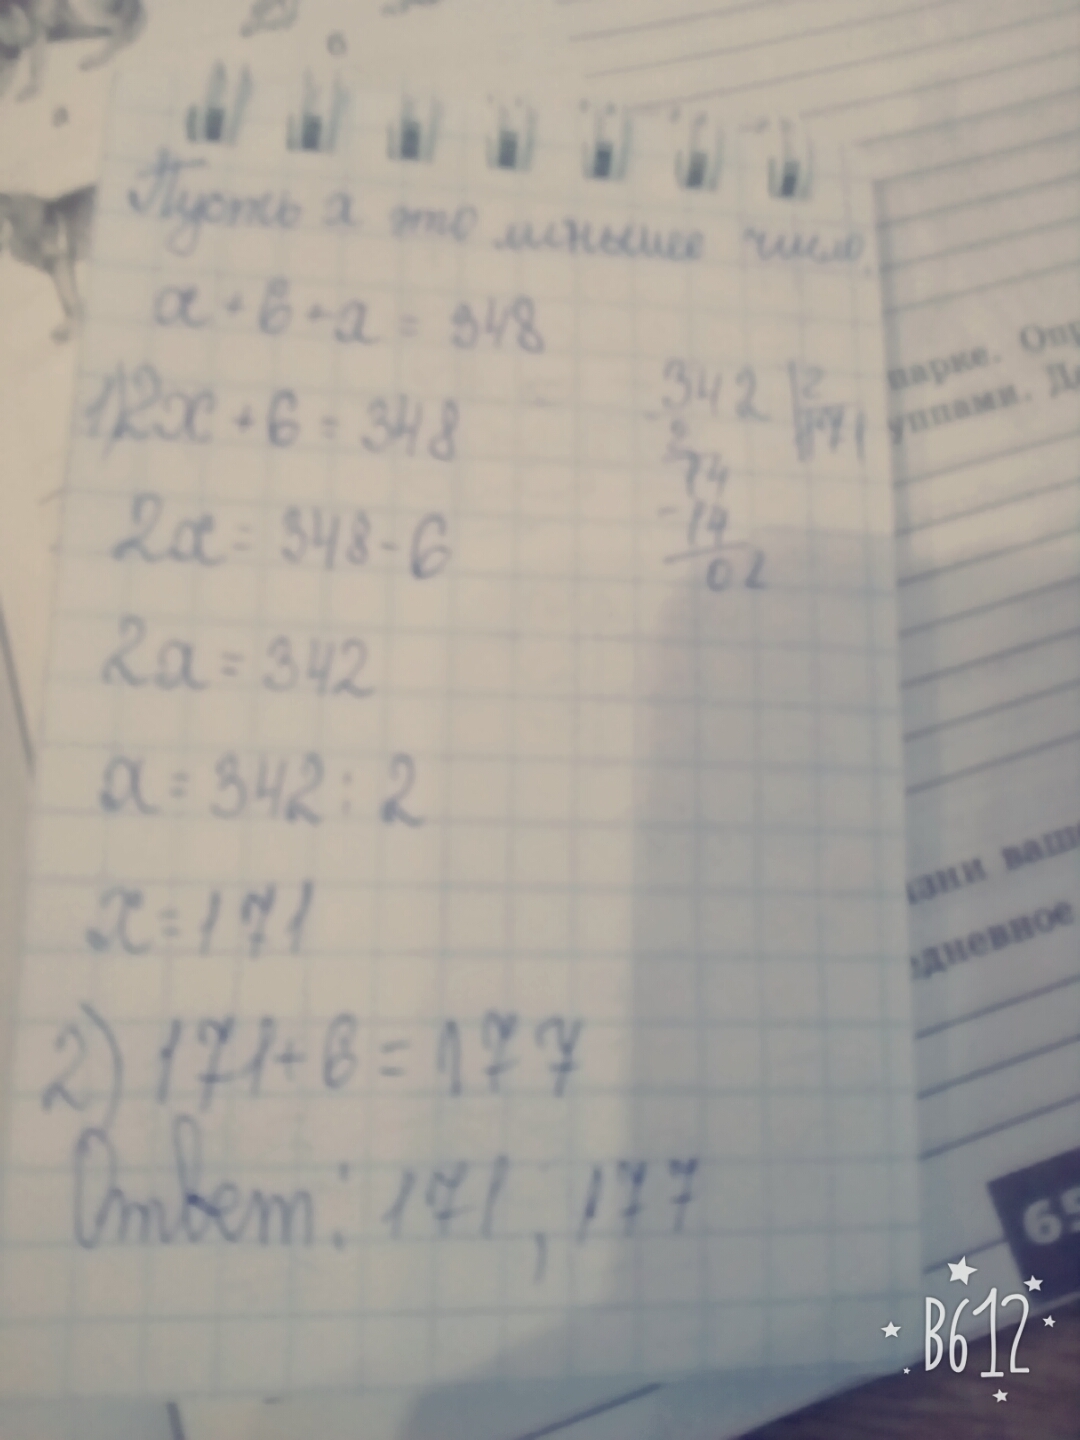 б
в
Пусть x это меньшее число.
x + 6 + x = 348
1) 2x + 6 = 348
2x = 348 - 6
2x = 342
x = 342 : 2
x = 171
2) 171 + 6 = 177
Ответ: 171, 177
342 2
- 2 171
14
- 14
02
парке. Опр
уппами. Да
изни ваше
едневное
65
B612